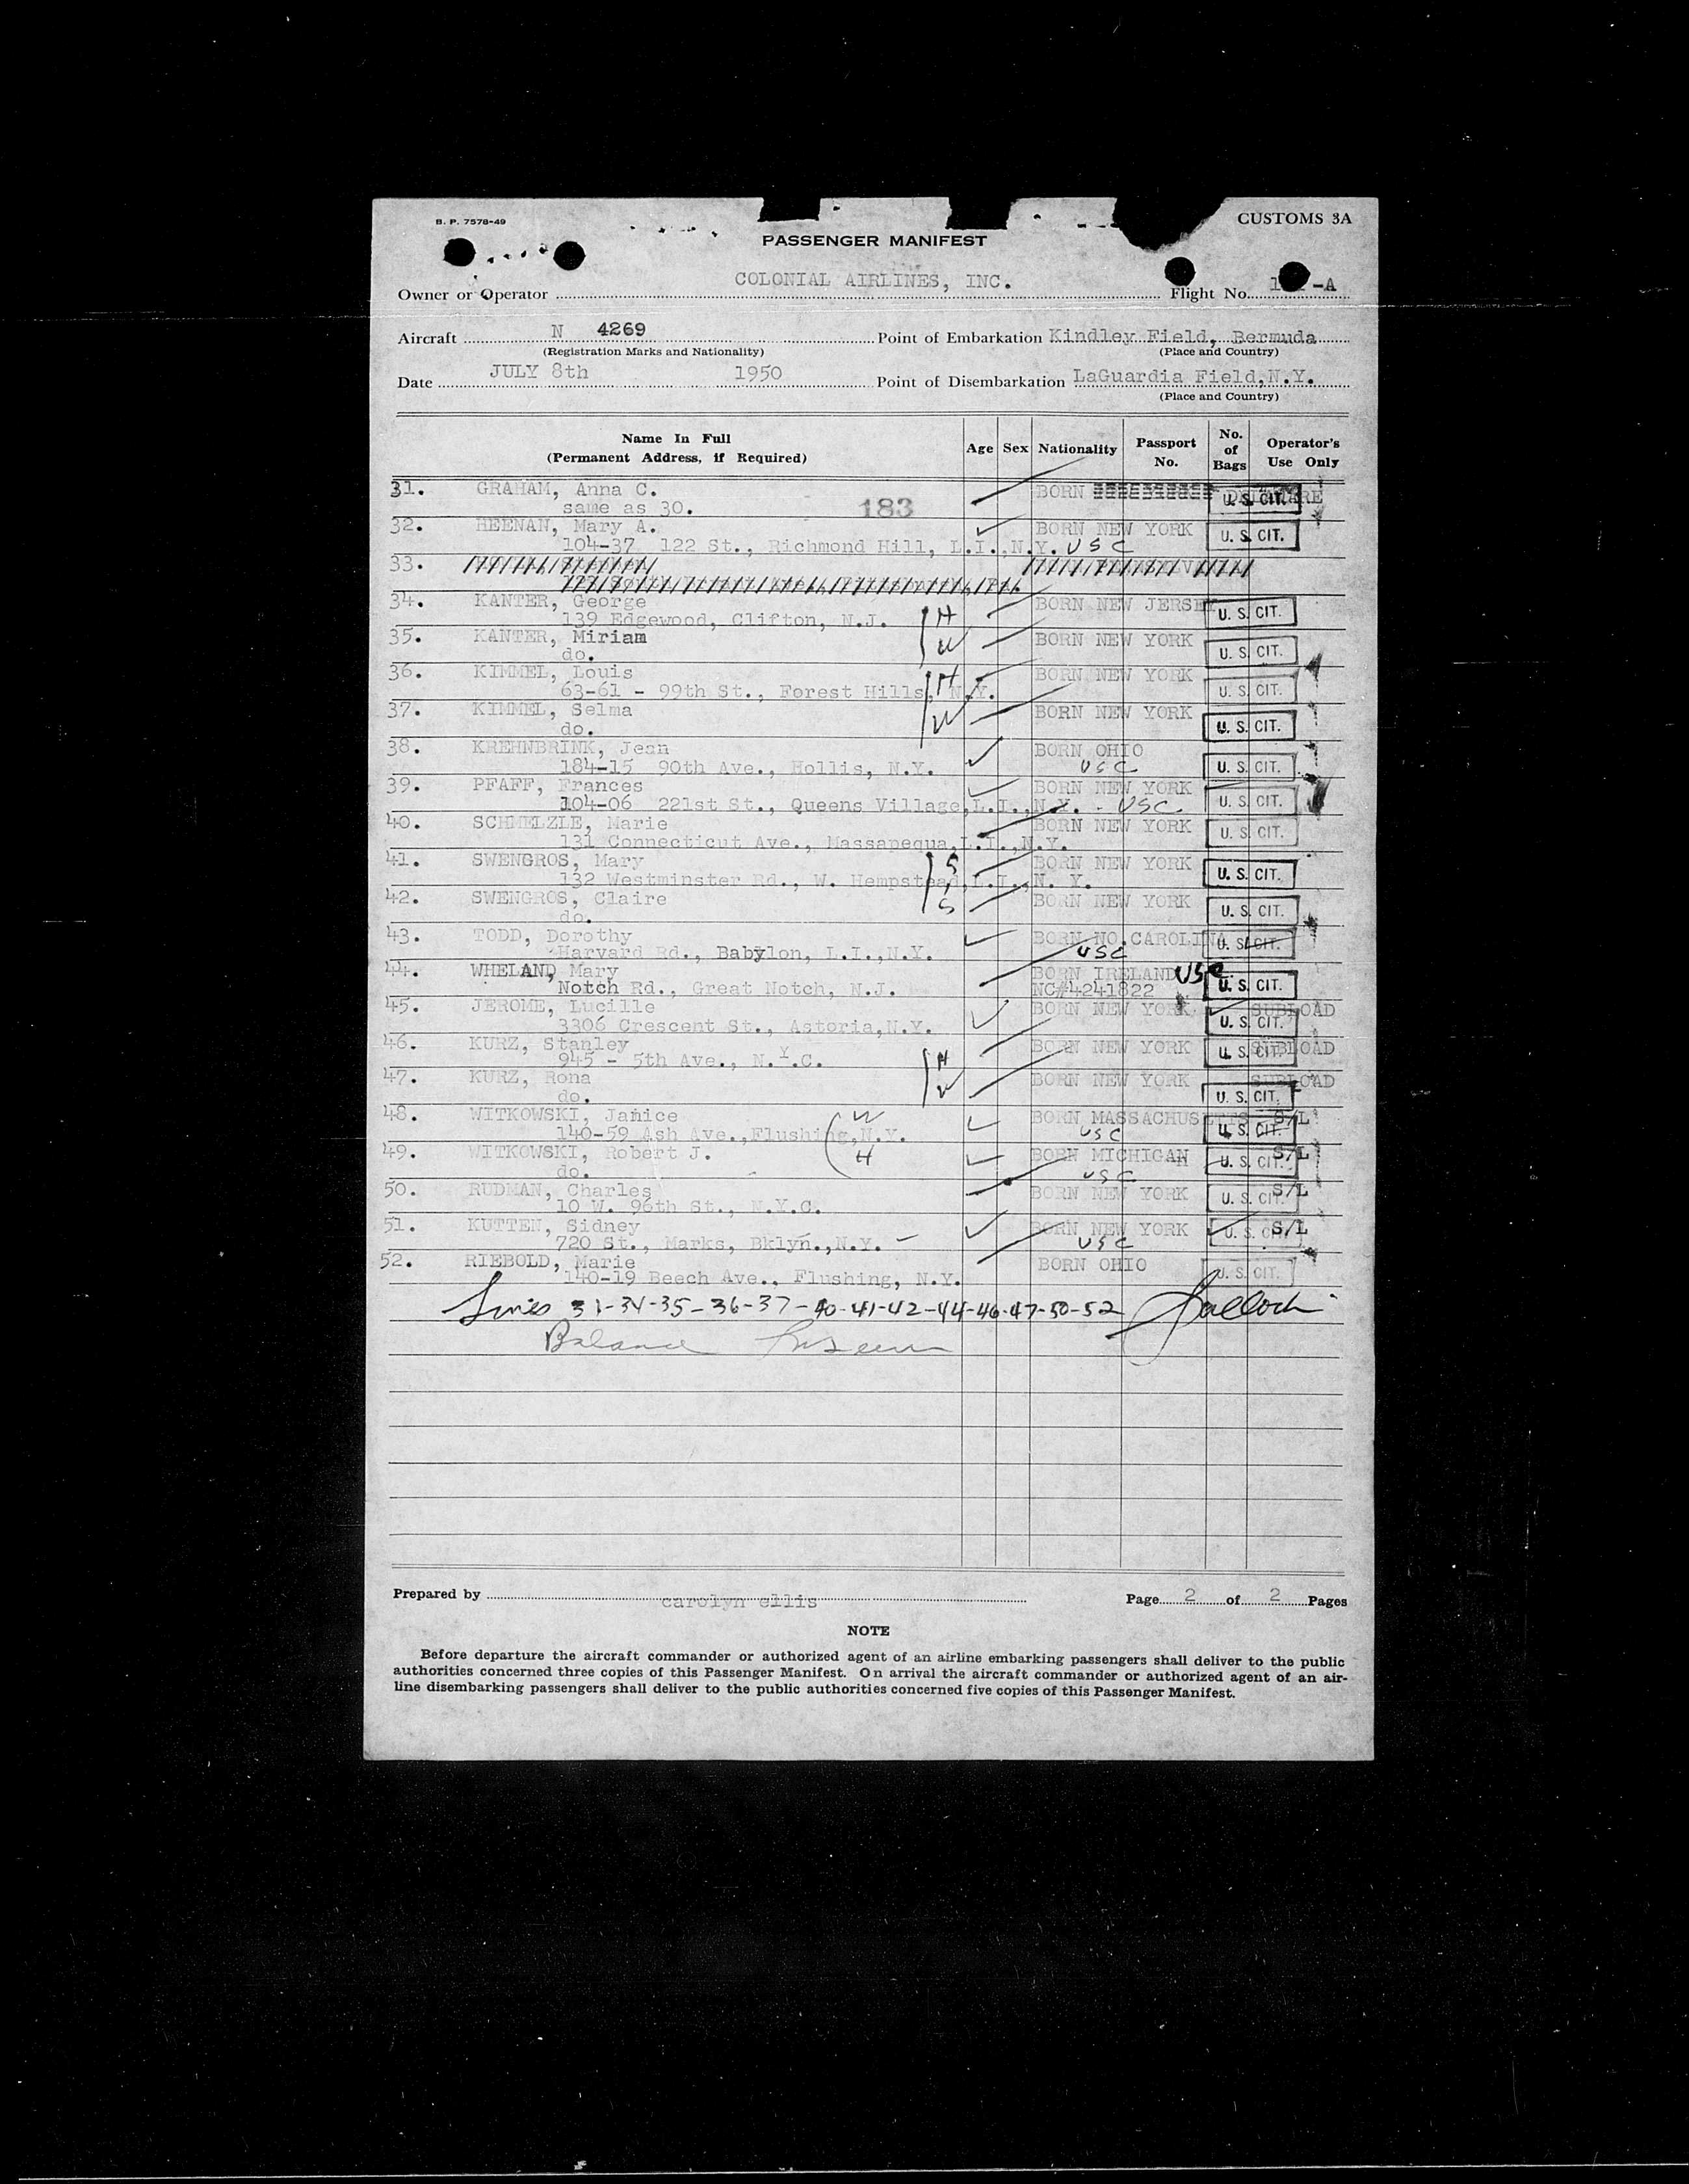 B. P. 7578-49
CUSTOMS 3A
PASSENGER MANIFEST
Owner or Operator COLONIAL AIRLINES, INC. Flight No. 1 -A
Aircraft N 4269 Point of Embarkation Kindley Field, Bermuda
(Registration Marks and Nationality) (Place and Country)
Date JULY 8th 1950 Point of Disembarkation LaGuardia Field, N.Y.
(Place and Country)
Name In Full (Permanent Address, if Required) Age Sex Nationality Passport No. No. of Bags Operator's Use Only
31. GRAHAM, Anna C. BORN U. S. CIT.
same as 30. 183
32. HEENAN, Mary A. BORN NEW YORK U. S. CIT.
104-37 122 St., Richmond Hill, L.I.,N.Y. USC
33.
34. KANTER, George BORN NEW JERSEY U. S. CIT.
139 Edgewood, Clifton, N.J. H
35. KANTER, Miriam W BORN NEW YORK U. S. CIT.
do.
36. KIMMEL, Louis H BORN NEW YORK U. S. CIT.
63-61 - 99th St., Forest Hills, N.Y.
37. KIMMEL, Selma W BORN NEW YORK U. S. CIT.
do.
38. KREHNBRINK, Jean BORN OHIO U. S. CIT.
184-15 90th Ave., Hollis, N.Y. USC
39. PFAFF, Frances BORN NEW YORK U. S. CIT.
104-06 221st St., Queens Village,L.I.,N.Y. - USC
40. SCHMELZLE, Marie BORN NEW YORK U. S. CIT.
131 Connecticut Ave., Massapequa,L.I.,N.Y.
41. SWENGROS, Mary S BORN NEW YORK U. S. CIT.
132 Westminster Rd., W. Hempstead,L.I.,N. Y.
42. SWENGROS, Claire S BORN NEW YORK U. S. CIT.
do.
43. TODD, Dorothy BORN NO.CAROLINA U. S. CIT.
Harvard Rd., Babylon, L.I.,N.Y. USC
44. WHELAND, Mary BORN IRELAND USC U. S. CIT.
Notch Rd., Great Notch, N.J. NC#4241822
45. JEROME, Lucille BORN NEW YORK U. S. CIT. SUBLOAD
3306 Crescent St., Astoria,N.Y.
46. KURZ, Stanley BORN NEW YORK U. S. CIT. SUBLOAD
945 - 5th Ave., N.Y.C. H
47. KURZ, Rona W BORN NEW YORK U. S. CIT. SUBLOAD
do.
48. WITKOWSKI, Janice W BORN MASSACHUSETTS U. S. CIT. S/L
140-59 Ash Ave.,Flushing,N.Y. USC
49. WITKOWSKI, Robert J. H BORN MICHIGAN U. S. CIT. S/L
do. USC
50. RUDMAN, Charles BORN NEW YORK U. S. CIT. S/L
10 W. 96th St., N.Y.C.
51. KUTTEN, Sidney BORN NEW YORK U. S. CIT. S/L
720 St., Marks, Bklyn.,N.Y. - USC
52. RIEBOLD, Marie BORN OHIO U. S. CIT.
140-19 Beech Ave., Flushing, N.Y.
Lines 31-34-35-36-37-40-41-42-44-46-47-50-52
Balance
Prepared by carolyn ellis Page 2 of 2 Pages
NOTE
Before departure the aircraft commander or authorized agent of an airline embarking passengers shall deliver to the public
authorities concerned three copies of this Passenger Manifest. On arrival the aircraft commander or authorized agent of an air-
line disembarking passengers shall deliver to the public authorities concerned five copies of this Passenger Manifest.